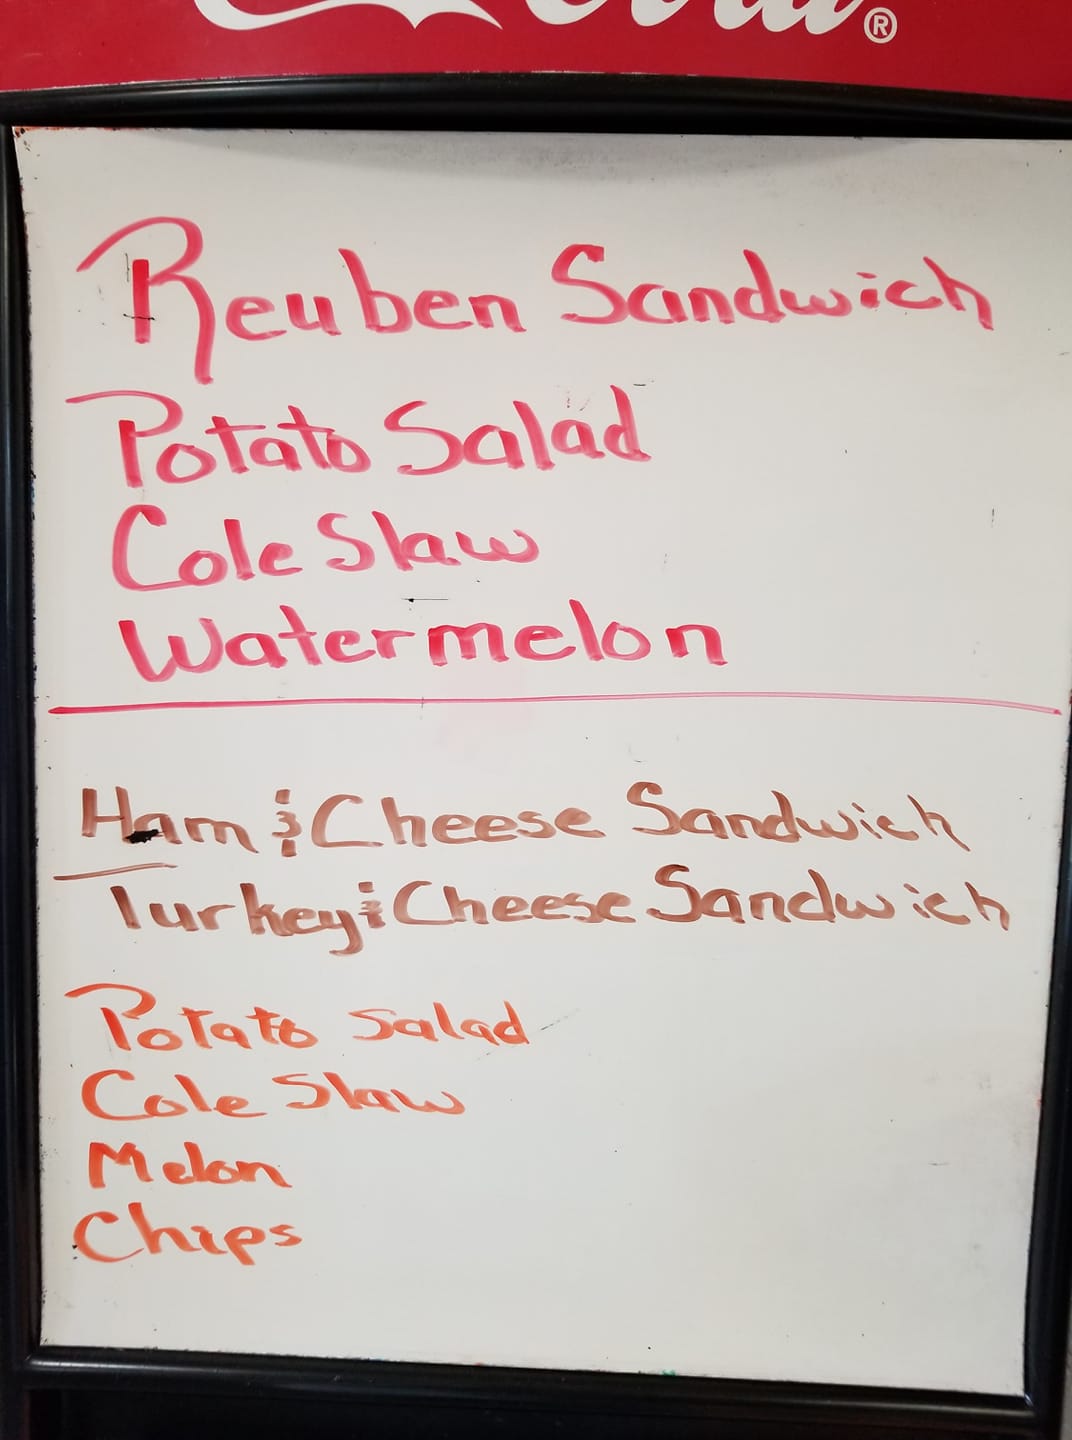 Cola®
Reuben Sandwich
Potato Salad
Cole Slaw
Watermelon
Ham & Cheese Sandwich
Turkey & Cheese Sandwich
Potato Salad
Cole Slaw
Melon
Chips